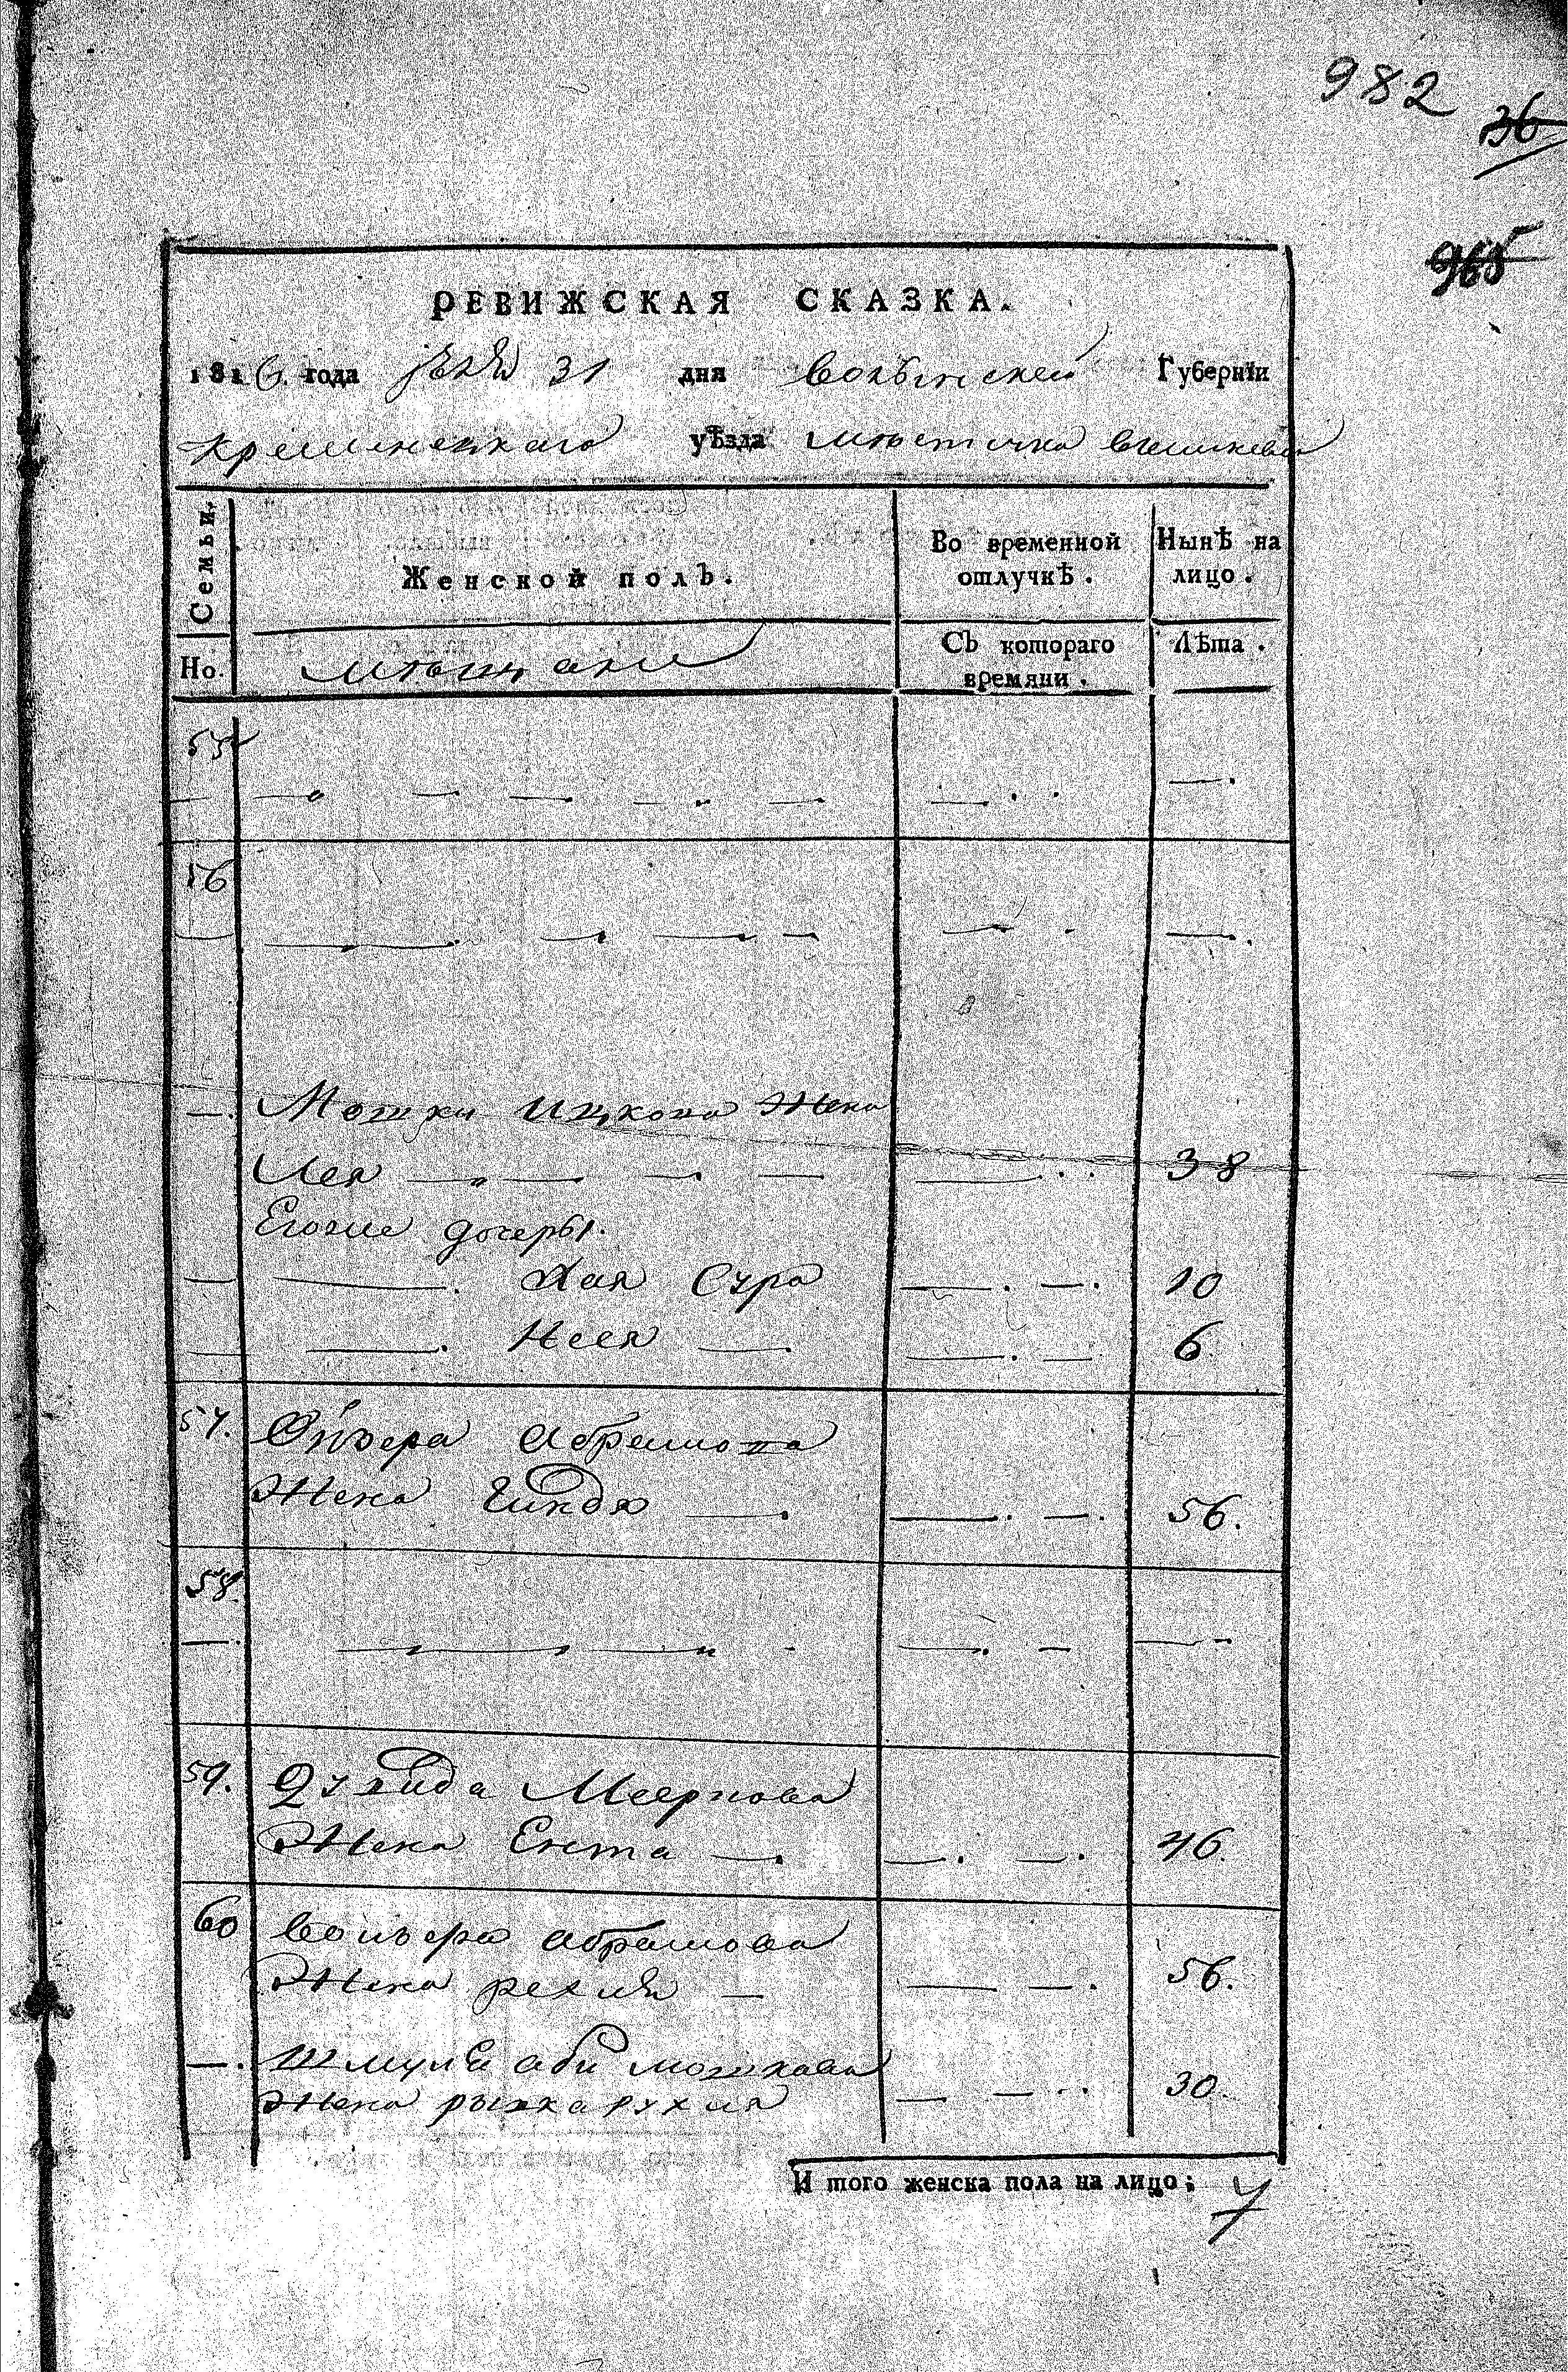 982
36
965
РЕВИЖСКАЯ СКАЗКА.
1816. года 31 дня волынской Губернїи
кременецкаго уѣзда мѣстечка вышневца
Семьи.
Женской полъ.
Во временной отлучкѣ.
Нынѣ на лицо.
Но.
мѣщане
Съ котораго времяни.
Лѣта.
55
56
Мошки Ицкова жена
Лея 38
Егоже дочеры.
Хая Сура 10
Нехя 6
57. Абрамова
Жена Гиндя 56.
58.
59. Меернова
Жена Ента 46.
60 абрамова
Жена рехля 56.
Шмуля аби мошкова
жена рухля 30.
И того женска пола на лицо; 7